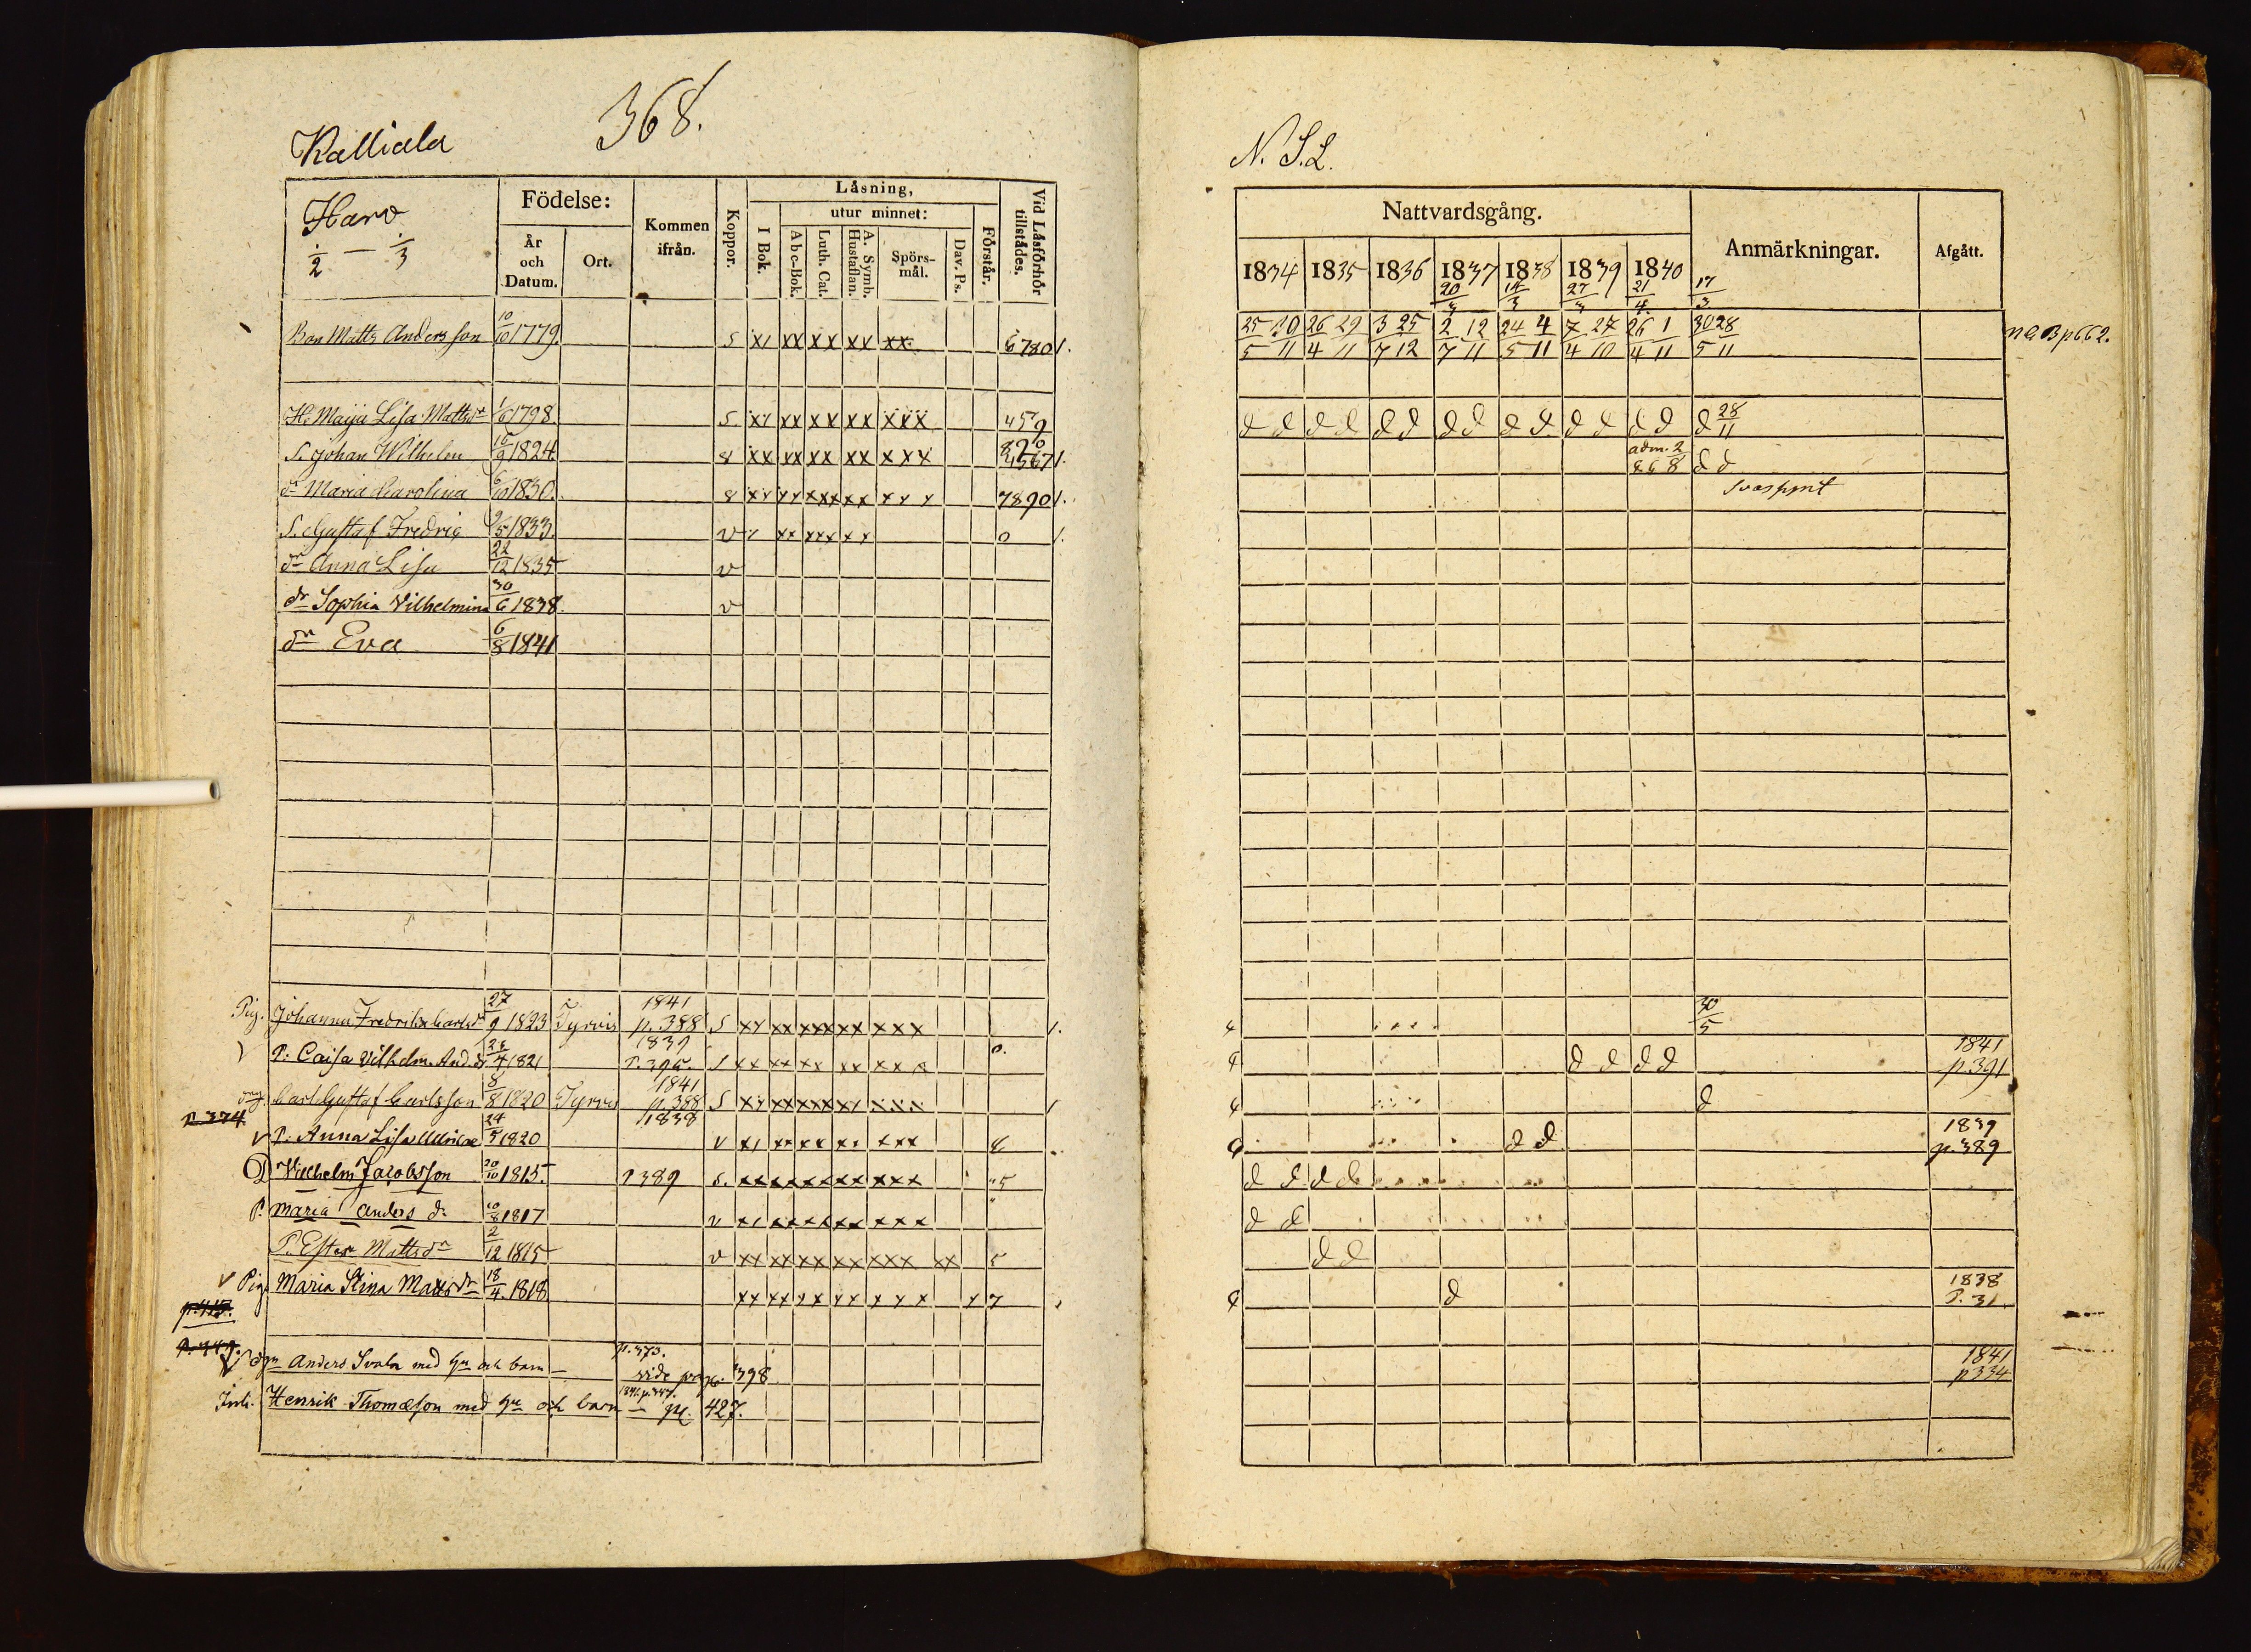 368.
Kalliala
Harv
1/2 — 1/3
Födelse:
År och Datum.
Ort.
Kommen ifrån.
Koppor.
Låsning,
I Bok.
utur minnet:
Abc-Bok.
Luth. Cat.
A. Symb. Hustaflan.
Spörs-mål.
Dav. Ps.
Förstår.
Vid Låsförhör tillstådes.
Bon Matts Andersson 10/10 1779. S x1 xx xx xx xx 6780 1.
H. Maija Lisa Mattsdr 1/6 1798. S. x1 xx xx xx xxx 459
S. Johan Wilhelm 16/9 1824 8 xx xx xx xx xxx 4567 1.
dr Maria Carolina 6/10 1830. 8 xx xx xxx xx xxx 7890 1.
S. Gustaf Fredric 9/5 1833. v xx xxx xx 0 1.
dr Anna Lisa 22/12 1835 v
dr Sophia Vilhelmina 30/6 1838. v
dr Eva 6/8 1841
Pig. Johanna Fredrika Carlsdr 27/9 1823 Tyrvis 1841 p. 388 S xx xx xxx xx xxx 1.
P. Caisa Vilhelm. And.dr 28/4 1821 1839 P. 395. xx xx xx xx 0.
drg. Carl Gustaf Carlsson 8/8 1820 Tyrvis 1841 p. 388 S xx xx xxx xx xxx 1
p. 374
v P. Anna Lisa Ulrika 24/5 1820 1838 v x1 xx xx xx xxx 8
D. Vilhelm Jacobsson 20/10 1815. p 389 S. xx xx xx xx xxx 5
P. Maria Anders d: 10/8 1817 v x1 xx xx xx xxx
P. Ester Mattsdr 2/12 1815 v xx xx xx xx xxx xx 5
v Pig. Maria Stina Mattsdr 18/4 1818 xx xx xx xx xxx x 7
p. 415.
v dgn Anders Svala med hu och barn — p. 373. vide pag. 398
Inh. Henrik Thomæson med hu och barn — pag. 427.
N. S.L.
Nattvardsgång.
Anmärkningar.
Afgått.
1834 1835 1836 1837 1838 1839 1840
20/3 14/3 27/3 21/4 17/3
25/5 10/11 26/4 29/11 3/7 25/12 2/7 12/11 24/5 4/11 7/4 27/10 26/4 1/11 30/5 28/11 n a B p 662.
d d d d d d d d d d d d d d d 28/11
adm. 2 868 d d
svagsynt
30/5
d d d d 1841 p. 391
d
d d 1839 p. 389
d d d d
d d
d d
d 1838 P. 31.
1841 p 334